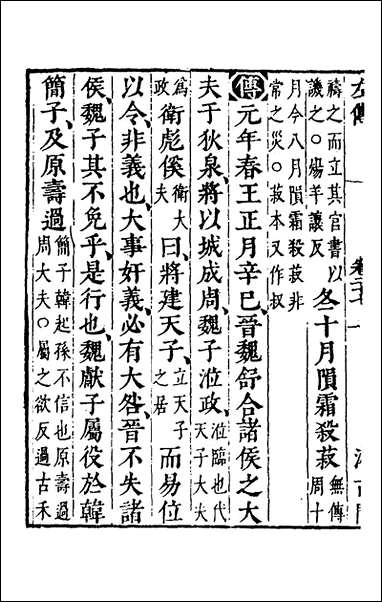 禱之而立其官書以譏之○煬羊讓反冬十月隕霜殺菽無傳周十
月今八月隕霜殺菽非常之災○菽本又作叔
傳元年春王正月辛巳、晉魏舒合諸侯之大
夫于狄泉、將以城成周、魏子涖政、涖臨也代天子大夫
爲政衛彪傒衛大夫曰、將建天子、立天子之居而易位
以令、非義也、大事奸義、必有大咎、晉不失諸
侯、魏子其不免乎、是行也、魏獻子屬役於韓
簡子、及原壽過簡子韓起孫不信也原壽過周大夫○屬之欲反過古禾